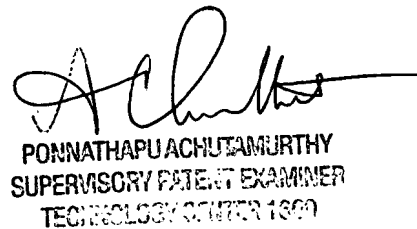 PONNATHAPU ACHUTAMURTHY
SUPERVISORY PATENT EXAMINER
TECHNOLOGY CENTER 1600